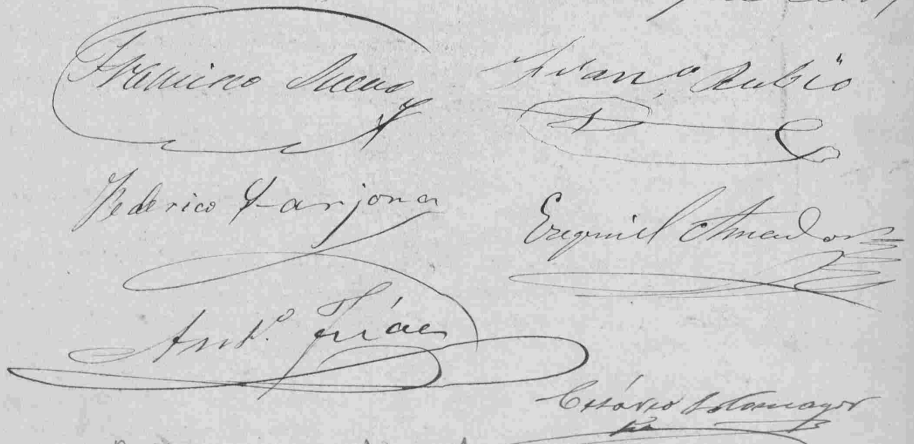 Francisco
Franco. Rubio
Federico Farjona
Ezequiel Amador
Anto. Frías
Cesáreo Sotomayor